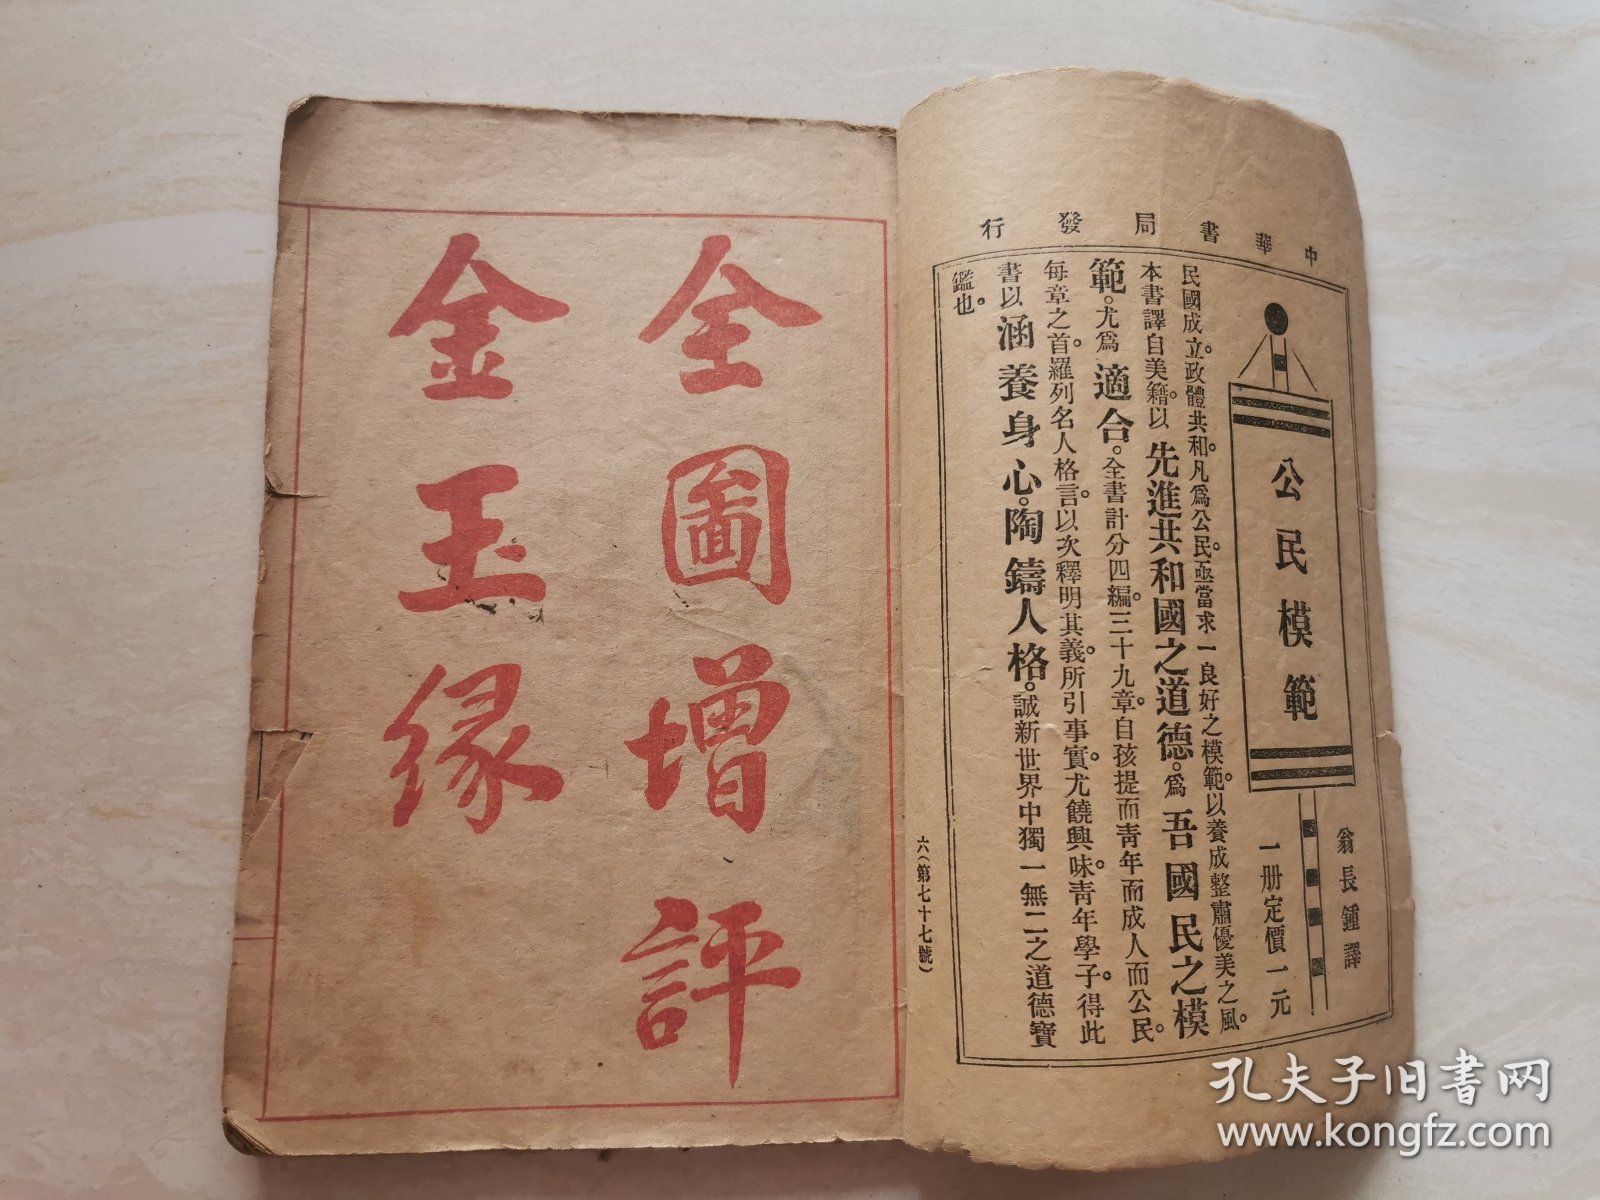 中華書局發行
公民模範
翁長鍾譯
一册定價一元
民國成立。政體共和。凡爲公民。亟當求一良好之模範。以養成整肅優美之風。
本書譯自美籍。以先進共和國之道德。爲吾國民之模
範。尤爲適合。全書計分四編。三十九章。自孩提而靑年而成人而公民。
每章之首。羅列名人格言。以次釋明其義。所引事實。尤饒興味。靑年學子。得此
書以涵養身心。陶鑄人格。誠新世界中獨一無二之道德寶
鑑也。
六(第七十七號)
全圖增評
金玉緣
孔夫子旧书网
www.kongfz.com